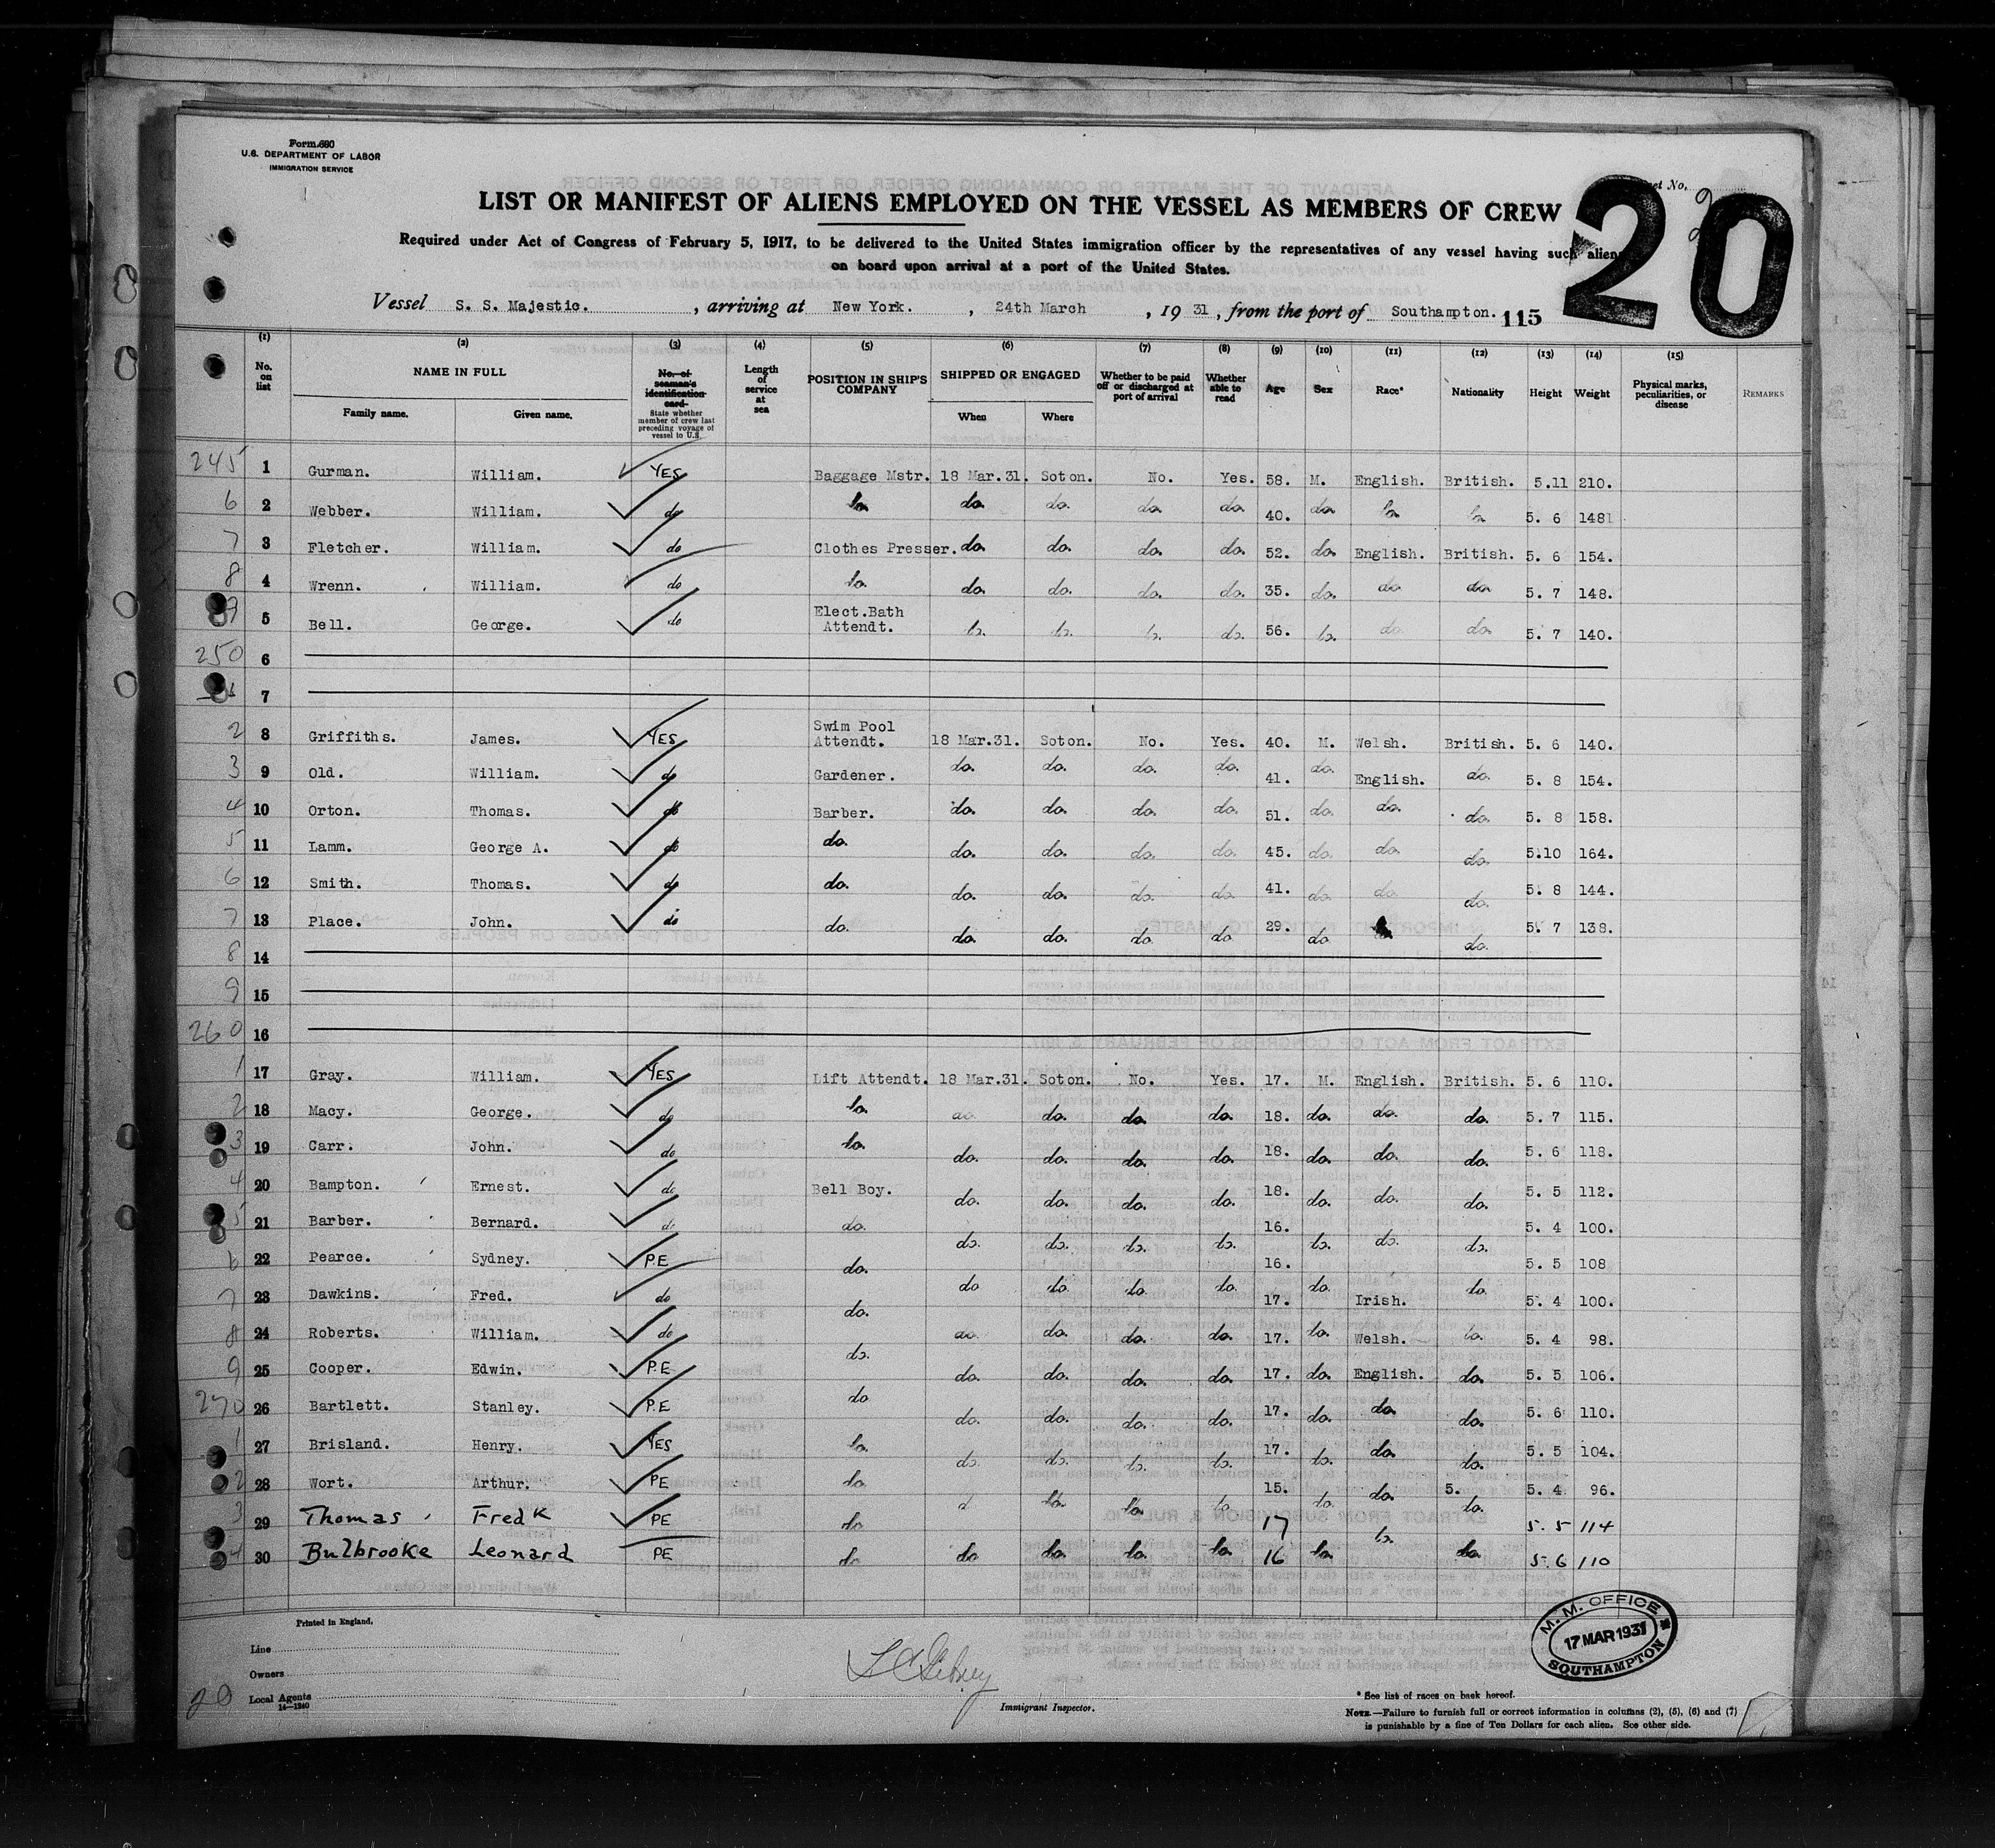 Form 680
U.S. DEPARTMENT OF LABOR
IMMIGRATION SERVICE
LIST OR MANIFEST OF ALIENS EMPLOYED ON THE VESSEL AS MEMBERS OF CREW
20
Required under Act of Congress of February 5, 1917, to be delivered to the United States immigration officer by the representatives of any vessel having such alien
on board upon arrival at a port of the United States.
Vessel S. S. Majestic. , arriving at New York. , 24th March , 19 31 , from the port of Southampton. 115
(1) (2) (3) (4) (5) (6) (7) (8) (9) (10) (11) (12) (13) (14) (15)
No. on list NAME IN FULL Family name. Given name. No. of seaman's identification card State whether member of crew last preceding voyage of vessel to U.S. Length of service at sea POSITION IN SHIP'S COMPANY SHIPPED OR ENGAGED When Where Whether to be paid off or discharged at port of arrival Whether able to read Age Sex Race* Nationality Height Weight Physical marks, peculiarities, or disease REMARKS
245 1 Gurman. William. YES Baggage Mstr. 18 Mar.31. Soton. No. Yes. 58. M. English. British. 5.11 210.
6 2 Webber. William. do do. do. do. do. do. 40. do. do. do. 5. 6 148
7 3 Fletcher. William. do Clothes Presser. do. do. do. do. 52. do. English. British. 5. 6 154.
8 4 Wrenn. William. do do. do. do. do. do. 35. do. do do 5. 7 148.
9 5 Bell. George. do Elect.Bath Attendt. do. do. do. do. 56. do. do. do. 5. 7 140.
250 6
7
2 8 Griffiths. James. YES Swim Pool Attendt. 18 Mar.31. Soton. No. Yes. 40. M. Welsh. British. 5. 6 140.
3 9 Old. William. do Gardener. do. do. do. do. 41. do. English. do. 5. 8 154.
4 10 Orton. Thomas. do Barber. do. do. do. do. 51. do. do. do. 5. 8 158.
5 11 Lamm. George A. do do. do. do. do. do. 45. do. do. do. 5.10 164.
6 12 Smith. Thomas. do do. do. do. do. do. 41. do. do. do. 5. 8 144.
7 13 Place. John. do do. do. do. do. do 29. do do. 5. 7 138.
8 14
9 15
260 16
1 17 Gray. William. YES Lift Attendt. 18 Mar.31. Soton. No. Yes. 17. M. English. British. 5. 6 110.
2 18 Macy. George. do do. do. do. do. do. 18. do. do. do. 5. 7 115.
3 19 Carr. John. do do. do. do. do. do. 18. do. do. do. 5. 6 118.
4 20 Bampton. Ernest. do Bell Boy. do. do. do. do. 18. do. do. do. 5. 5 112.
5 21 Barber. Bernard. do do. do. do. do. do. 16. do. do. do. 5. 4 100.
6 22 Pearce. Sydney. P.E do. do do. do. do. 16. do. do. 5. 5 108
7 23 Dawkins. Fred. do do. 17. Irish. 5. 4 100.
8 24 Roberts. William. do do. do. do. do. do. 17. do. Welsh. do. 5. 4 98.
9 25 Cooper. Edwin. P.E do do. do. do. do. 17. do. English. do. 5. 5 106.
270 26 Bartlett. Stanley. P.E do. do. do. do. 17. do. do. do. 5. 6 110.
1 27 Brisland. Henry. YES do. do. do. do. do. 17. do. do. do. 5. 5 104.
2 28 Wort. Arthur. PE do do. do. do 15. do. do. 5. do. 5. 4 96.
3 29 Thomas Fredk PE do 17 do. 5. 5 114
4 30 Bulbrooke Leonard PE do do do. do. do. 16 do. do. 5. 6 110
Printed in England.
Line
Owners
Local Agents
14—1240
20
Immigrant Inspector.
M. M. OFFICE
17 MAR 1931
SOUTHAMPTON
* See list of races on back hereof.
NOTE.—Failure to furnish full or correct information in columns (2), (5), (6) and (7)
is punishable by a fine of Ten Dollars for each alien. See other side.